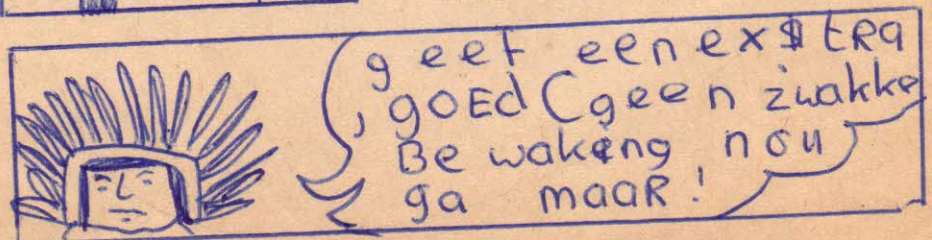 geef een extra
, goed (geen zwakke
Bewaking nou
ga maar!